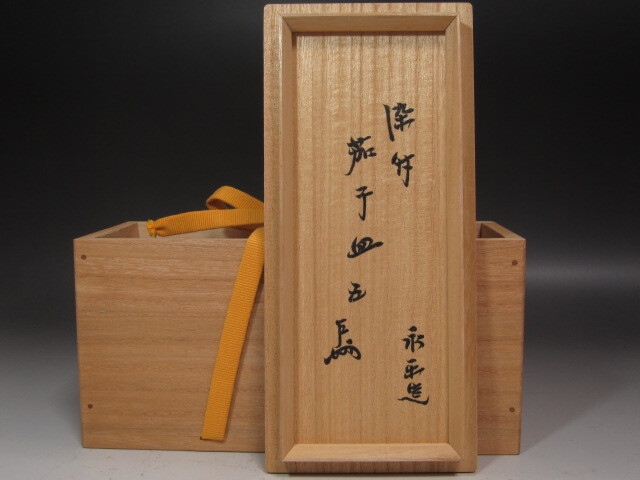 染付
茄子皿五
永 造